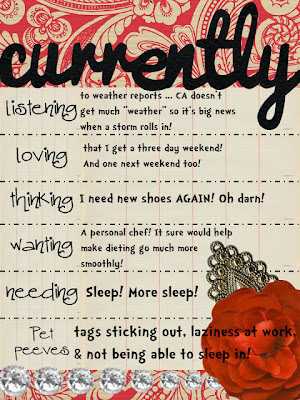 currently
listening
to weather reports ... CA doesn't
get much "weather" so it's big news
when a storm rolls in!
loving
that I get a three day weekend!
And one next weekend too!
thinking
I need new shoes AGAIN! Oh darn!
wanting
A personal chef? It sure would help
make dieting go much more
smoothly!
needing
Sleep! More sleep!
Pet
peeves
tags sticking out, laziness at work,
& not being able to sleep in!